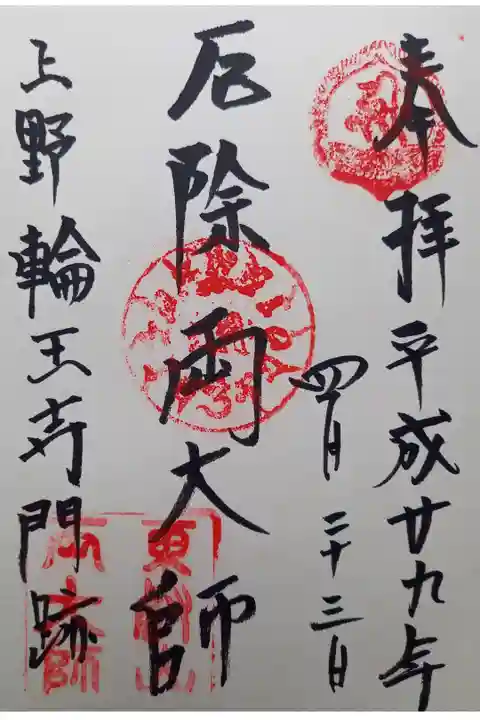 奉拝平成廿九年
四月二十三日
厄除両大師
上野輪王寺門跡
東叡山
両大師